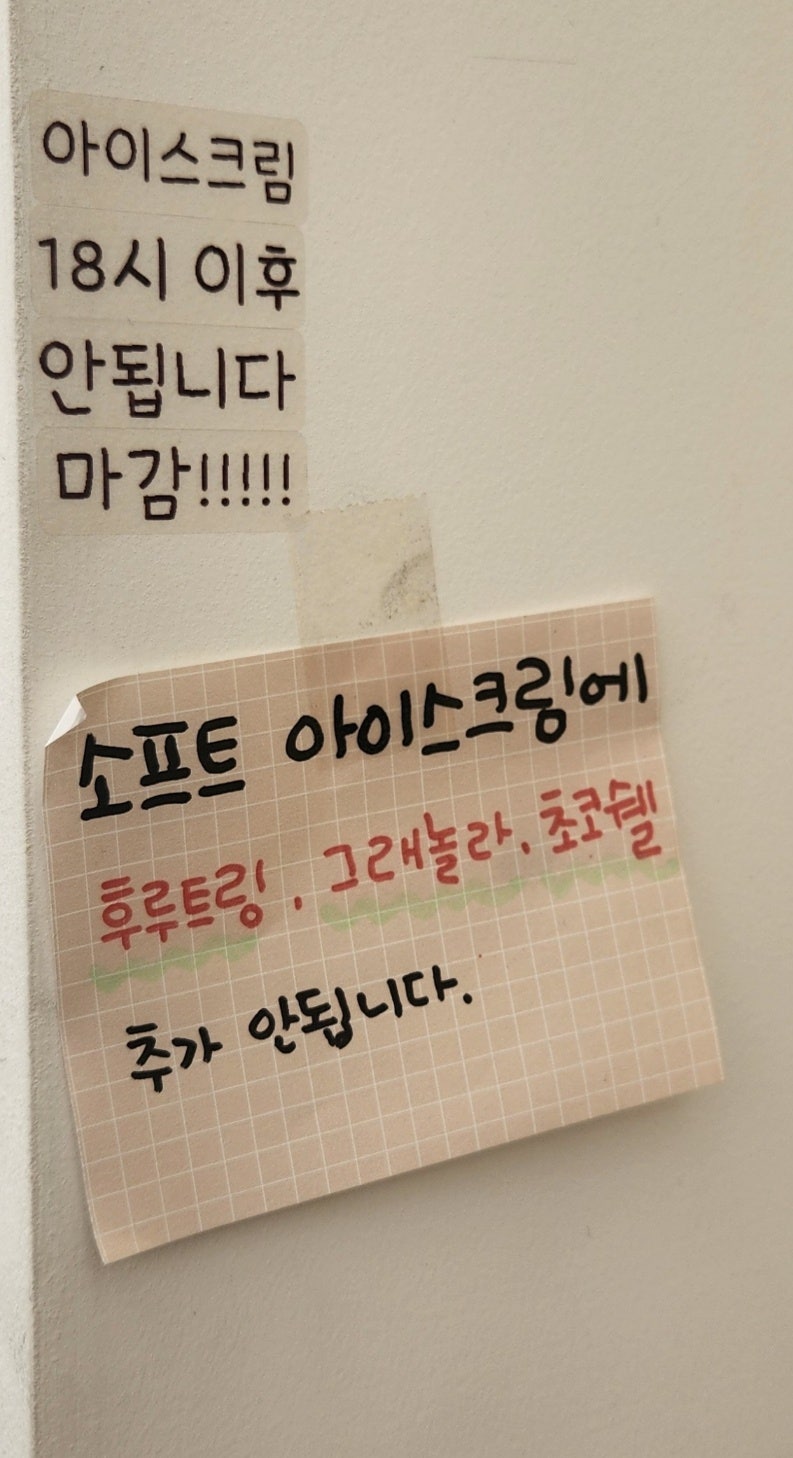 아이스크림
18시 이후
안됩니다
마감!!!!!
소프트 아이스크림에
후루트링, 그래놀라, 초코쉘
추가 안됩니다.